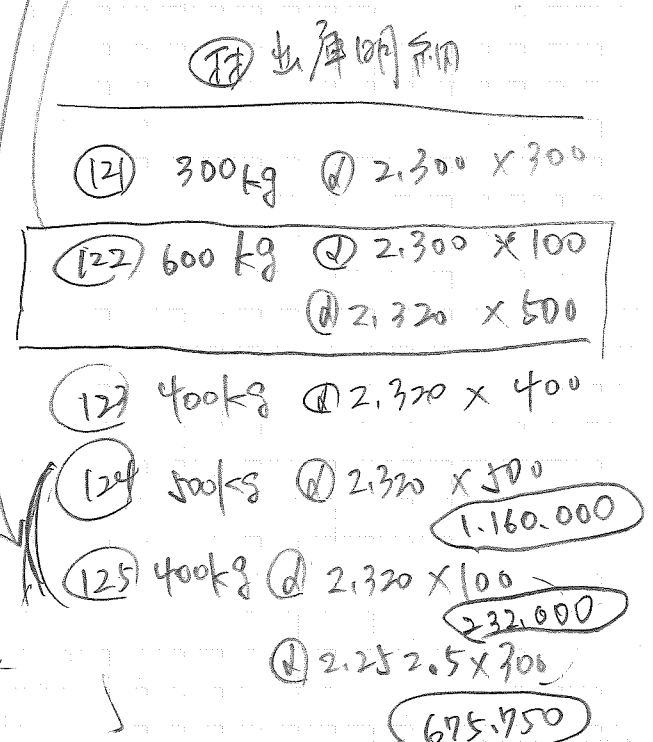 ㊑ 出庫明細
(121) 300kg @ 2,300 × 300
(122) 600kg @ 2,300 × 100
@ 2,320 × 500
(123) 400kg @ 2,320 × 400
(124) 500kg @ 2,320 × 500
1.160.000
(125) 400kg @ 2,320 × 100
232,000
@ 2.252.5 × 300
675.750